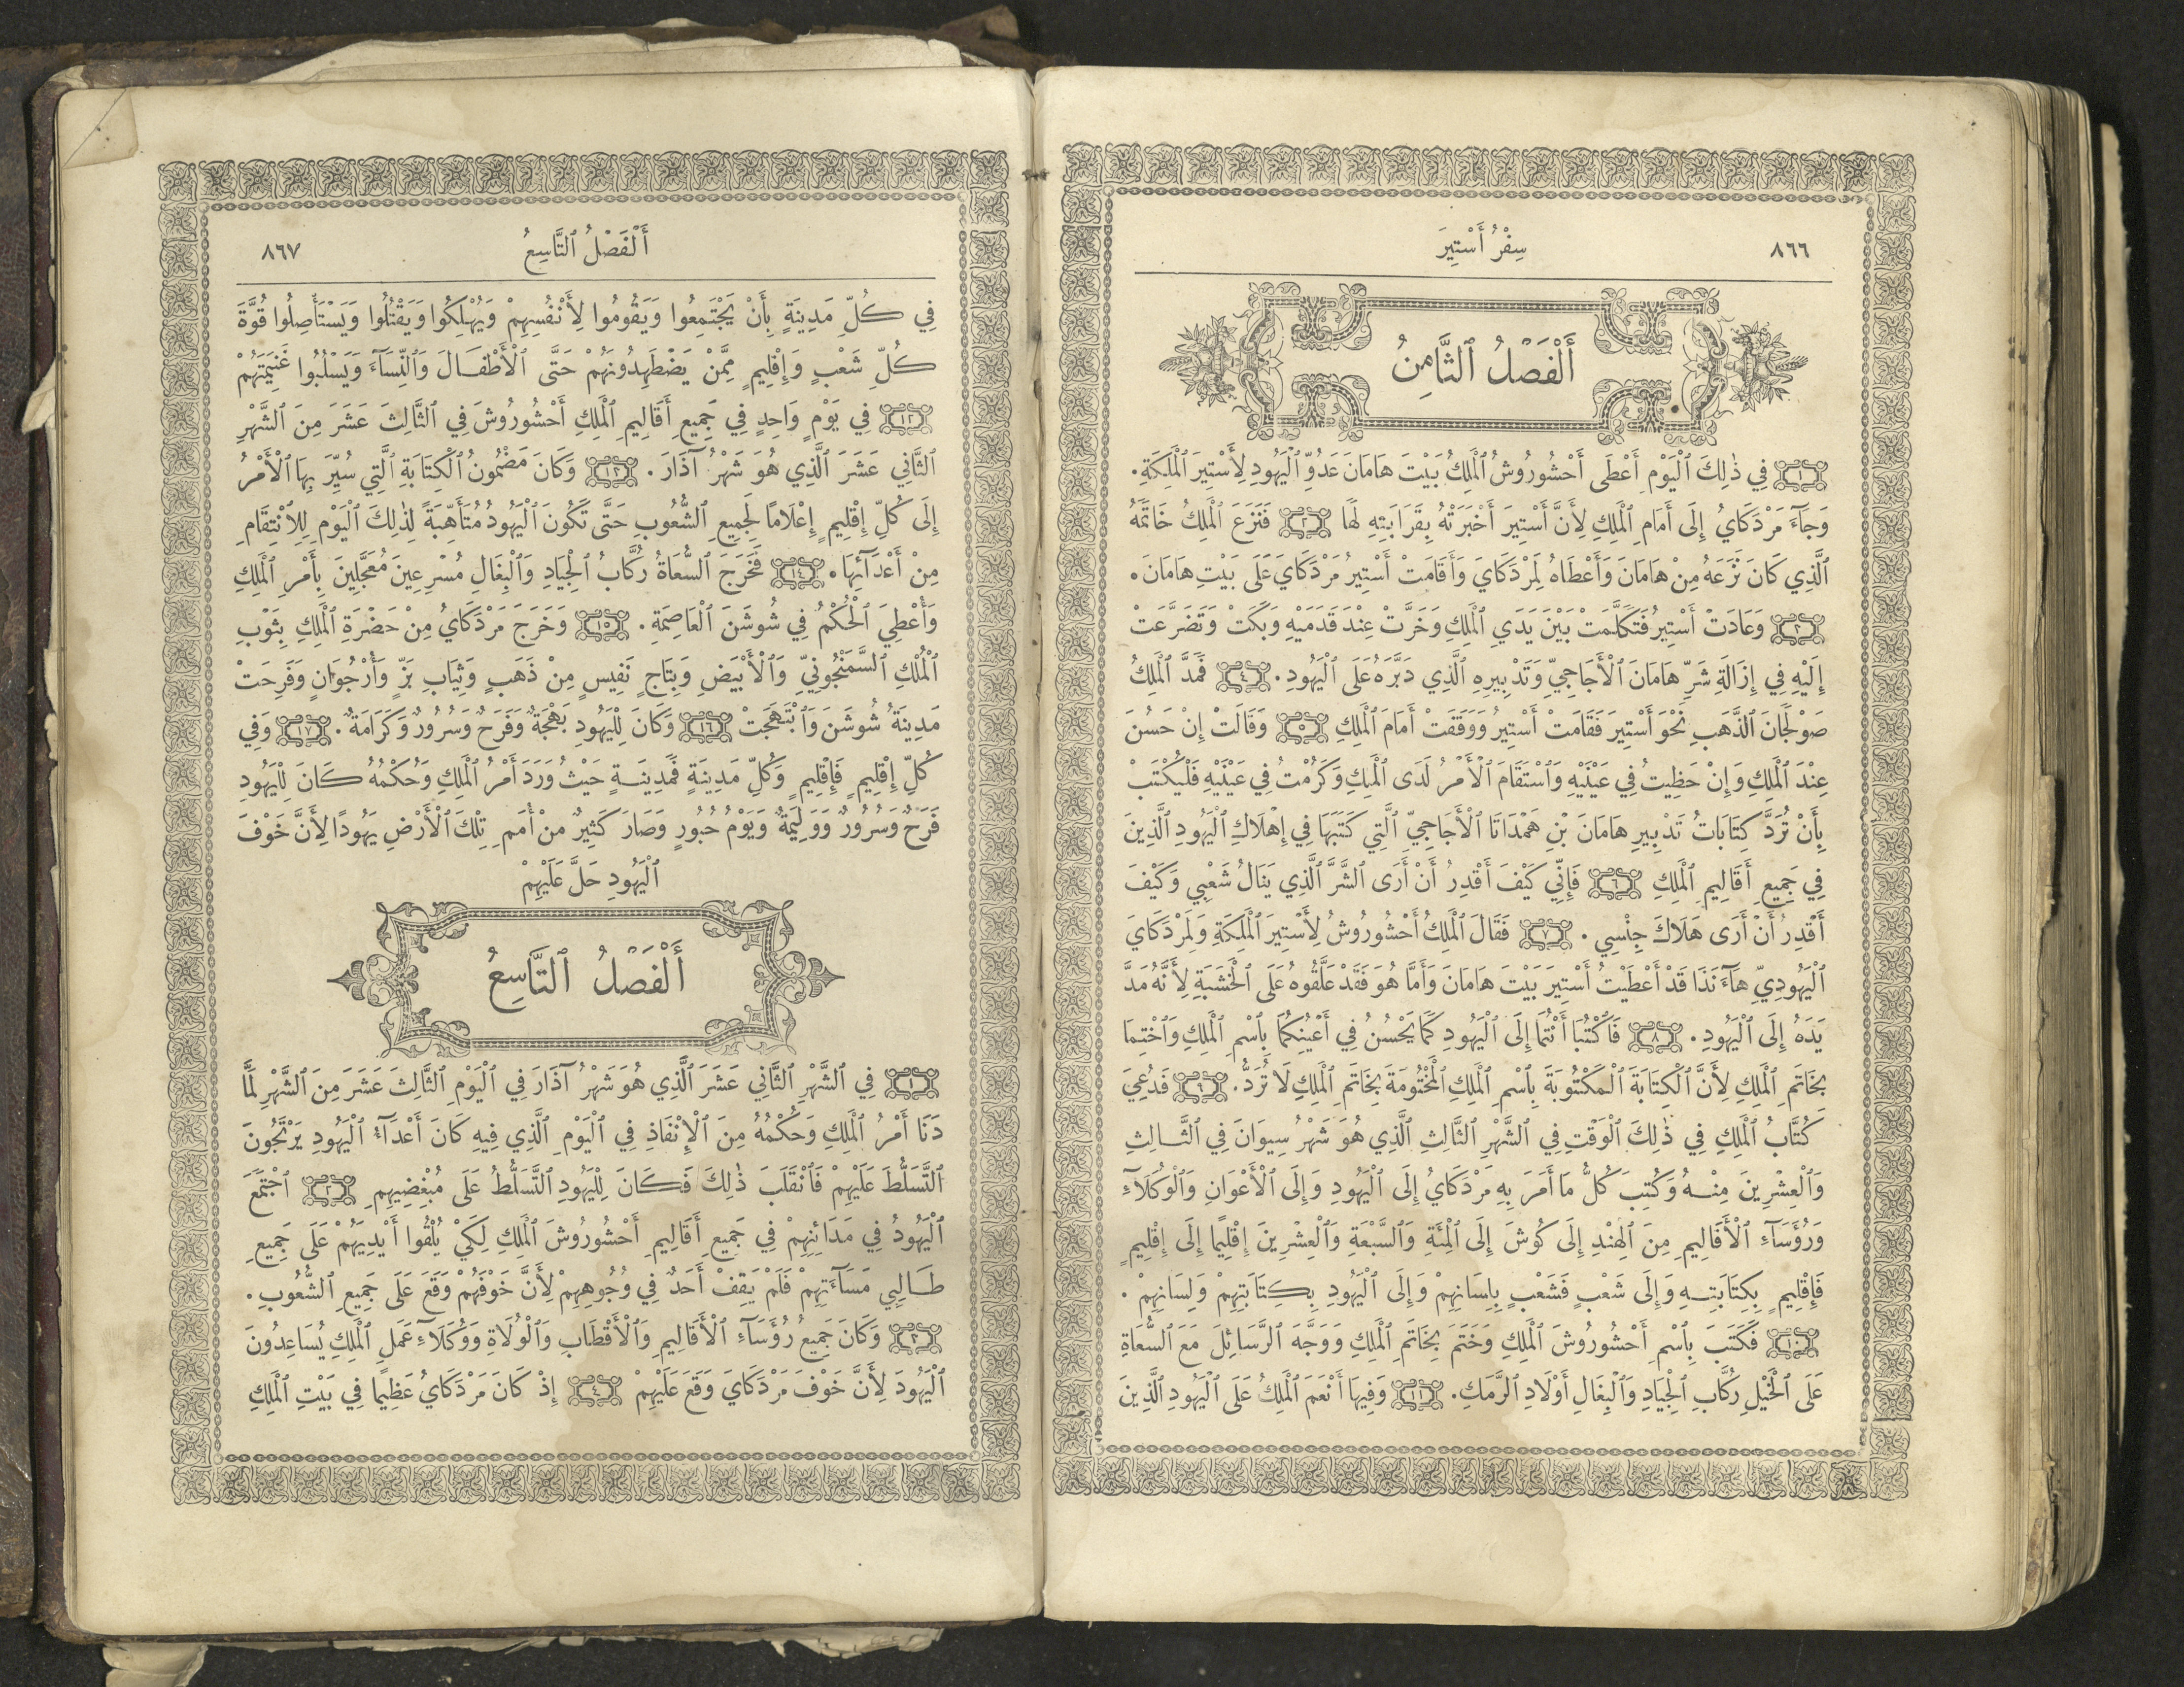 ٨٦٦
سِفْرُ أَسْتِيرَ
أَلْفَصْلُ ٱلثَّامِنُ
١ فِي ذٰلِكَ ٱلْيَوْمِ أَعْطَى أَحْشُورُوشُ ٱلْمَلِكُ بَيْتَ هَامَانَ عَدُوِّ ٱلْيَهُودِ لِأَسْتِيرَ ٱلْمَلِكَةِ.
وَجَآءَ مَرْدَكَايُ إِلَى أَمَامِ ٱلْمَلِكِ لِأَنَّ أَسْتِيرَ أَخْبَرَتْهُ بِقَرَابَتِهِ لَهَا ٢ فَنَزَعَ ٱلْمَلِكُ خَاتَمَهُ
ٱلَّذِي كَانَ نَزَعَهُ مِنْ هَامَانَ وَأَعْطَاهُ لِمَرْدَكَايَ وَأَقَامَتْ أَسْتِيرُ مَرْدَكَايَ عَلَى بَيْتِ هَامَانَ.
٣ وَعَادَتْ أَسْتِيرُ فَتَكَلَّمَتْ بَيْنَ يَدَيِ ٱلْمَلِكِ وَخَرَّتْ عِنْدَ قَدَمَيْهِ وَبَكَتْ وَتَضَرَّعَتْ
إِلَيْهِ فِي إِزَالَةِ شَرِّ هَامَانَ ٱلْأَجَاجِيِّ وَتَدْبِيرِهِ ٱلَّذِي دَبَّرَهُ عَلَى ٱلْيَهُودِ. ٤ فَمَدَّ ٱلْمَلِكُ
صَوْلَجَانَ ٱلذَّهَبِ نَحْوَ أَسْتِيرَ فَقَامَتْ أَسْتِيرُ وَوَقَفَتْ أَمَامَ ٱلْمَلِكِ ٥ وَقَالَتْ إِنْ حَسُنَ
عِنْدَ ٱلْمَلِكِ وَإِنْ حَظِيتُ فِي عَيْنَيْهِ وَٱسْتَقَامَ ٱلْأَمْرُ لَدَى ٱلْمَلِكِ وَكَرُمْتُ فِي عَيْنَيْهِ فَلْيُكْتَبْ
بِأَنْ تُرَدَّ كِتَابَاتُ تَدْبِيرِ هَامَانَ بْنِ هَمْدَاتَا ٱلْأَجَاجِيِّ ٱلَّتِي كَتَبَهَا فِي إِهْلَاكِ ٱلْيَهُودِ ٱلَّذِينَ
فِي جَمِيعِ أَقَالِيمِ ٱلْمَلِكِ ٦ فَإِنِّي كَيْفَ أَقْدِرُ أَنْ أَرَى ٱلشَّرَّ ٱلَّذِي يَنَالُ شَعْبِي وَكَيْفَ
أَقْدِرُ أَنْ أَرَى هَلَاكَ جِنْسِي. ٧ فَقَالَ ٱلْمَلِكُ أَحْشُورُوشُ لِأَسْتِيرَ ٱلْمَلِكَةِ وَلِمَرْدَكَايَ
ٱلْيَهُودِيِّ هَآءَنَذَا قَدْ أَعْطَيْتُ أَسْتِيرَ بَيْتَ هَامَانَ وَأَمَّا هُوَ فَقَدْ عَلَّقُوهُ عَلَى ٱلْخَشَبَةِ لِأَنَّهُ مَدَّ
يَدَهُ إِلَى ٱلْيَهُودِ. ٨ فَٱكْتُبَا أَنْتُمَا إِلَى ٱلْيَهُودِ كَمَا يَحْسُنُ فِي أَعْيُنِكُمَا بِٱسْمِ ٱلْمَلِكِ وَٱخْتِمَا
بِخَاتَمِ ٱلْمَلِكِ لِأَنَّ ٱلْكِتَابَةَ ٱلْمَكْتُوبَةَ بِٱسْمِ ٱلْمَلِكِ ٱلْمَخْتُومَةَ بِخَاتَمِ ٱلْمَلِكِ لَا تُرَدُّ. ٩ فَدُعِيَ
كُتَّابُ ٱلْمَلِكِ فِي ذٰلِكَ ٱلْوَقْتِ فِي ٱلشَّهْرِ ٱلثَّالِثِ ٱلَّذِي هُوَ شَهْرُ سِيوَانَ فِي ٱلثَّالِثِ
وَٱلْعِشْرِينَ مِنْهُ وَكُتِبَ كُلُّ مَا أَمَرَ بِهِ مَرْدَكَايُ إِلَى ٱلْيَهُودِ وَإِلَى ٱلْأَعْوَانِ وَٱلْوُكَلَآءِ
وَرُؤَسَآءِ ٱلْأَقَالِيمِ مِنَ ٱلْهِنْدِ إِلَى كُوشَ إِلَى ٱلْمِئَةِ وَٱلسَّبْعَةِ وَٱلْعِشْرِينَ إِقْلِيمًا إِلَى إِقْلِيمٍ
فَإِقْلِيمٍ بِكِتَابَتِهِ وَإِلَى شَعْبٍ فَشَعْبٍ بِلِسَانِهِمْ وَإِلَى ٱلْيَهُودِ بِكِتَابَتِهِمْ وَلِسَانِهِمْ.
١٠ فَكَتَبَ بِٱسْمِ أَحْشُورُوشَ ٱلْمَلِكِ وَخَتَمَ بِخَاتَمِ ٱلْمَلِكِ وَوَجَّهَ ٱلرَّسَائِلَ مَعَ ٱلسُّعَاةِ
عَلَى ٱلْخَيْلِ رُكَّابِ ٱلْجِيَادِ وَٱلْبِغَالِ أَوْلَادِ ٱلرَّمَكِ. ١١ وَفِيهَا أَنْعَمَ ٱلْمَلِكُ عَلَى ٱلْيَهُودِ ٱلَّذِينَ
أَلْفَصْلُ ٱلتَّاسِعُ
٨٦٧
فِي كُلِّ مَدِينَةٍ بِأَنْ يَجْتَمِعُوا وَيَقُومُوا لِأَنْفُسِهِمْ وَيُهْلِكُوا وَيَقْتُلُوا وَيَسْتَأْصِلُوا قُوَّةَ
كُلِّ شَعْبٍ وَإِقْلِيمٍ مِمَّنْ يَضْطَهِدُونَهُمْ حَتَّى ٱلْأَطْفَالَ وَٱلنِّسَآءَ وَيَسْلُبُوا غَنِيمَتَهُمْ
١٢ فِي يَوْمٍ وَاحِدٍ فِي جَمِيعِ أَقَالِيمِ ٱلْمَلِكِ أَحْشُورُوشَ فِي ٱلثَّالِثَ عَشَرَ مِنَ ٱلشَّهْرِ
ٱلثَّانِي عَشَرَ ٱلَّذِي هُوَ شَهْرُ آذَارَ. ١٣ وَكَانَ مَضْمُونُ ٱلْكِتَابَةِ ٱلَّتِي سُيِّرَ بِهَا ٱلْأَمْرُ
إِلَى كُلِّ إِقْلِيمٍ إِعْلَامًا لِجَمِيعِ ٱلشُّعُوبِ حَتَّى تَكُونَ ٱلْيَهُودُ مُتَأَهِّبَةً لِذٰلِكَ ٱلْيَوْمِ لِلِٱنْتِقَامِ
مِنْ أَعْدَآئِهَا. ١٤ فَخَرَجَ ٱلسُّعَاةُ رُكَّابُ ٱلْجِيَادِ وَٱلْبِغَالِ مُسْرِعِينَ مُعَجَّلِينَ بِأَمْرِ ٱلْمَلِكِ
وَأُعْطِيَ ٱلْحُكْمُ فِي شُوشَنَ ٱلْعَاصِمَةِ. ١٥ وَخَرَجَ مَرْدَكَايُ مِنْ حَضْرَةِ ٱلْمَلِكِ بِثَوْبِ
ٱلْمُلْكِ ٱلسَّمَنْجُونِيِّ وَٱلْأَبْيَضِ وَبِتَاجٍ نَفِيسٍ مِنْ ذَهَبٍ وَثِيَابِ بَزٍّ وَأُرْجُوَانٍ وَفَرِحَتْ
مَدِينَةُ شُوشَنَ وَٱبْتَهَجَتْ ١٦ وَكَانَ لِلْيَهُودِ بَهْجَةٌ وَفَرَحٌ وَسُرُورٌ وَكَرَامَةٌ. ١٧ وَفِي
كُلِّ إِقْلِيمٍ فَإِقْلِيمٍ وَكُلِّ مَدِينَةٍ فَمَدِينَةٍ حَيْثُ وَرَدَ أَمْرُ ٱلْمَلِكِ وَحُكْمُهُ كَانَ لِلْيَهُودِ
فَرَحٌ وَسُرُورٌ وَوَلِيمَةٌ وَيَوْمُ حُبُورٍ وَصَارَ كَثِيرٌ مِنْ أُمَمِ تِلْكَ ٱلْأَرْضِ يَهُودًا لِأَنَّ خَوْفَ
ٱلْيَهُودِ حَلَّ عَلَيْهِمْ
أَلْفَصْلُ ٱلتَّاسِعُ
١ فِي ٱلشَّهْرِ ٱلثَّانِي عَشَرَ ٱلَّذِي هُوَ شَهْرُ آذَارَ فِي ٱلْيَوْمِ ٱلثَّالِثَ عَشَرَ مِنَ ٱلشَّهْرِ لَمَّا
دَنَا أَمْرُ ٱلْمَلِكِ وَحُكْمُهُ مِنَ ٱلْإِنْفَاذِ فِي ٱلْيَوْمِ ٱلَّذِي فِيهِ كَانَ أَعْدَآءُ ٱلْيَهُودِ يَرْتَجُونَ
ٱلتَّسَلُّطَ عَلَيْهِمْ فَٱنْقَلَبَ ذٰلِكَ فَكَانَ لِلْيَهُودِ ٱلتَّسَلُّطُ عَلَى مُبْغِضِيهِمِ ٢ ٱجْتَمَعَ
ٱلْيَهُودُ فِي مَدَائِنِهِمْ فِي جَمِيعِ أَقَالِيمِ أَحْشُورُوشَ ٱلْمَلِكِ لِكَيْ يُلْقُوا أَيْدِيَهُمْ عَلَى جَمِيعِ
طَالِبِي مَسَآءَتِهِمْ فَلَمْ يَقِفْ أَحَدٌ فِي وُجُوهِهِمْ لِأَنَّ خَوْفَهُمْ وَقَعَ عَلَى جَمِيعِ ٱلشُّعُوبِ.
٣ وَكَانَ جَمِيعُ رُؤَسَآءِ ٱلْأَقَالِيمِ وَٱلْأَقْطَابِ وَٱلْوُلَاةِ وَوُكَلَآءِ عَمَلِ ٱلْمَلِكِ يُسَاعِدُونَ
ٱلْيَهُودَ لِأَنَّ خَوْفَ مَرْدَكَايَ وَقَعَ عَلَيْهِمْ ٤ إِذْ كَانَ مَرْدَكَايُ عَظِيمًا فِي بَيْتِ ٱلْمَلِكِ